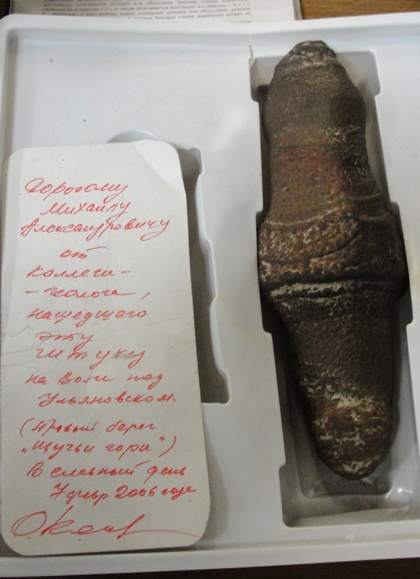 Дорогому
Михаилу
Александровичу
от
коллеги-
-геолога,
нашедшего
эту
штуку
на Волге под
Ульяновском.
(Правый берег
"Щучьи горы")
В славный день
2006 года